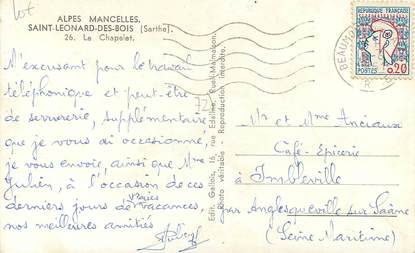 lot
ALPES MANCELLES
SAINT-LEONARD-DES-BOIS (Sarthe)
26. Le Chapelet.
M'excusant pour le travail
téléphonique et peut-être
de serrurerie, supplémentaire
que je vous ai occasionné,
je vous envoie, ainsi que Mme
Julien, à l'occasion de ces
derniers jours de vraies vacances,
nos meilleures amitiés
72
Edit. Gallois, 16, rue Edeline, Rueil-Malmaison
Photo véritable - Reproduction interdite.
REPUBLIQUE FRANÇAISE
POSTES 0,20
BEAUMO
Mr et Mme Anciaux
Café-Epicerie
à Imbleville
par Anglesqueville sur Saâne
(Seine Maritime)